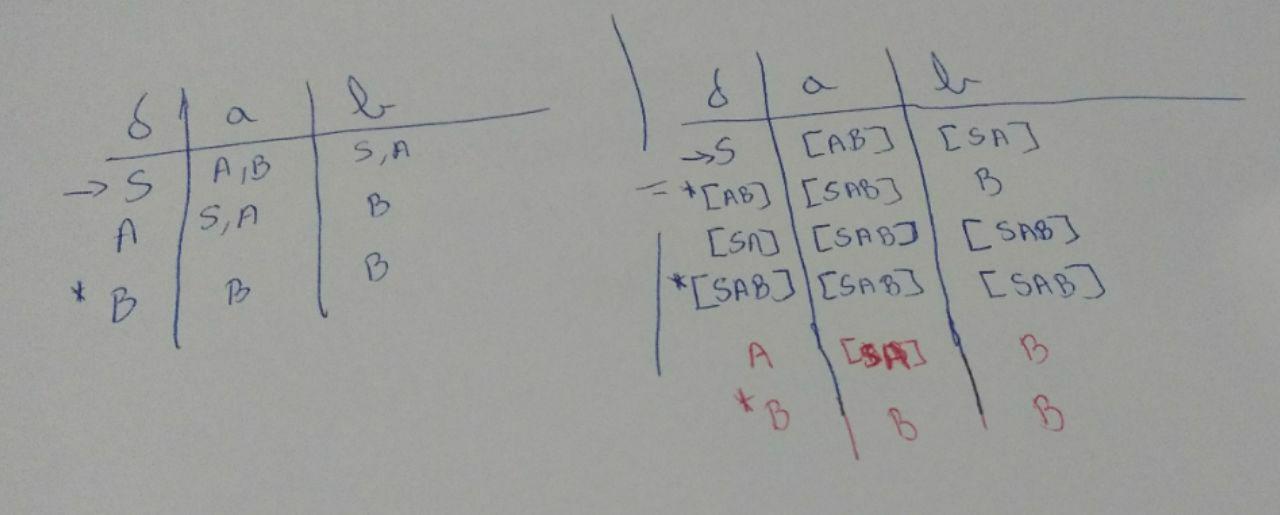 δ a b
→ S A,B S,A
A S,A B
* B B B
δ a b
→S [AB] [SA]
*[AB] [SAB] B
[SA] [SAB] [SAB]
*[SAB] [SAB] [SAB]
A [SA] B
*B B B